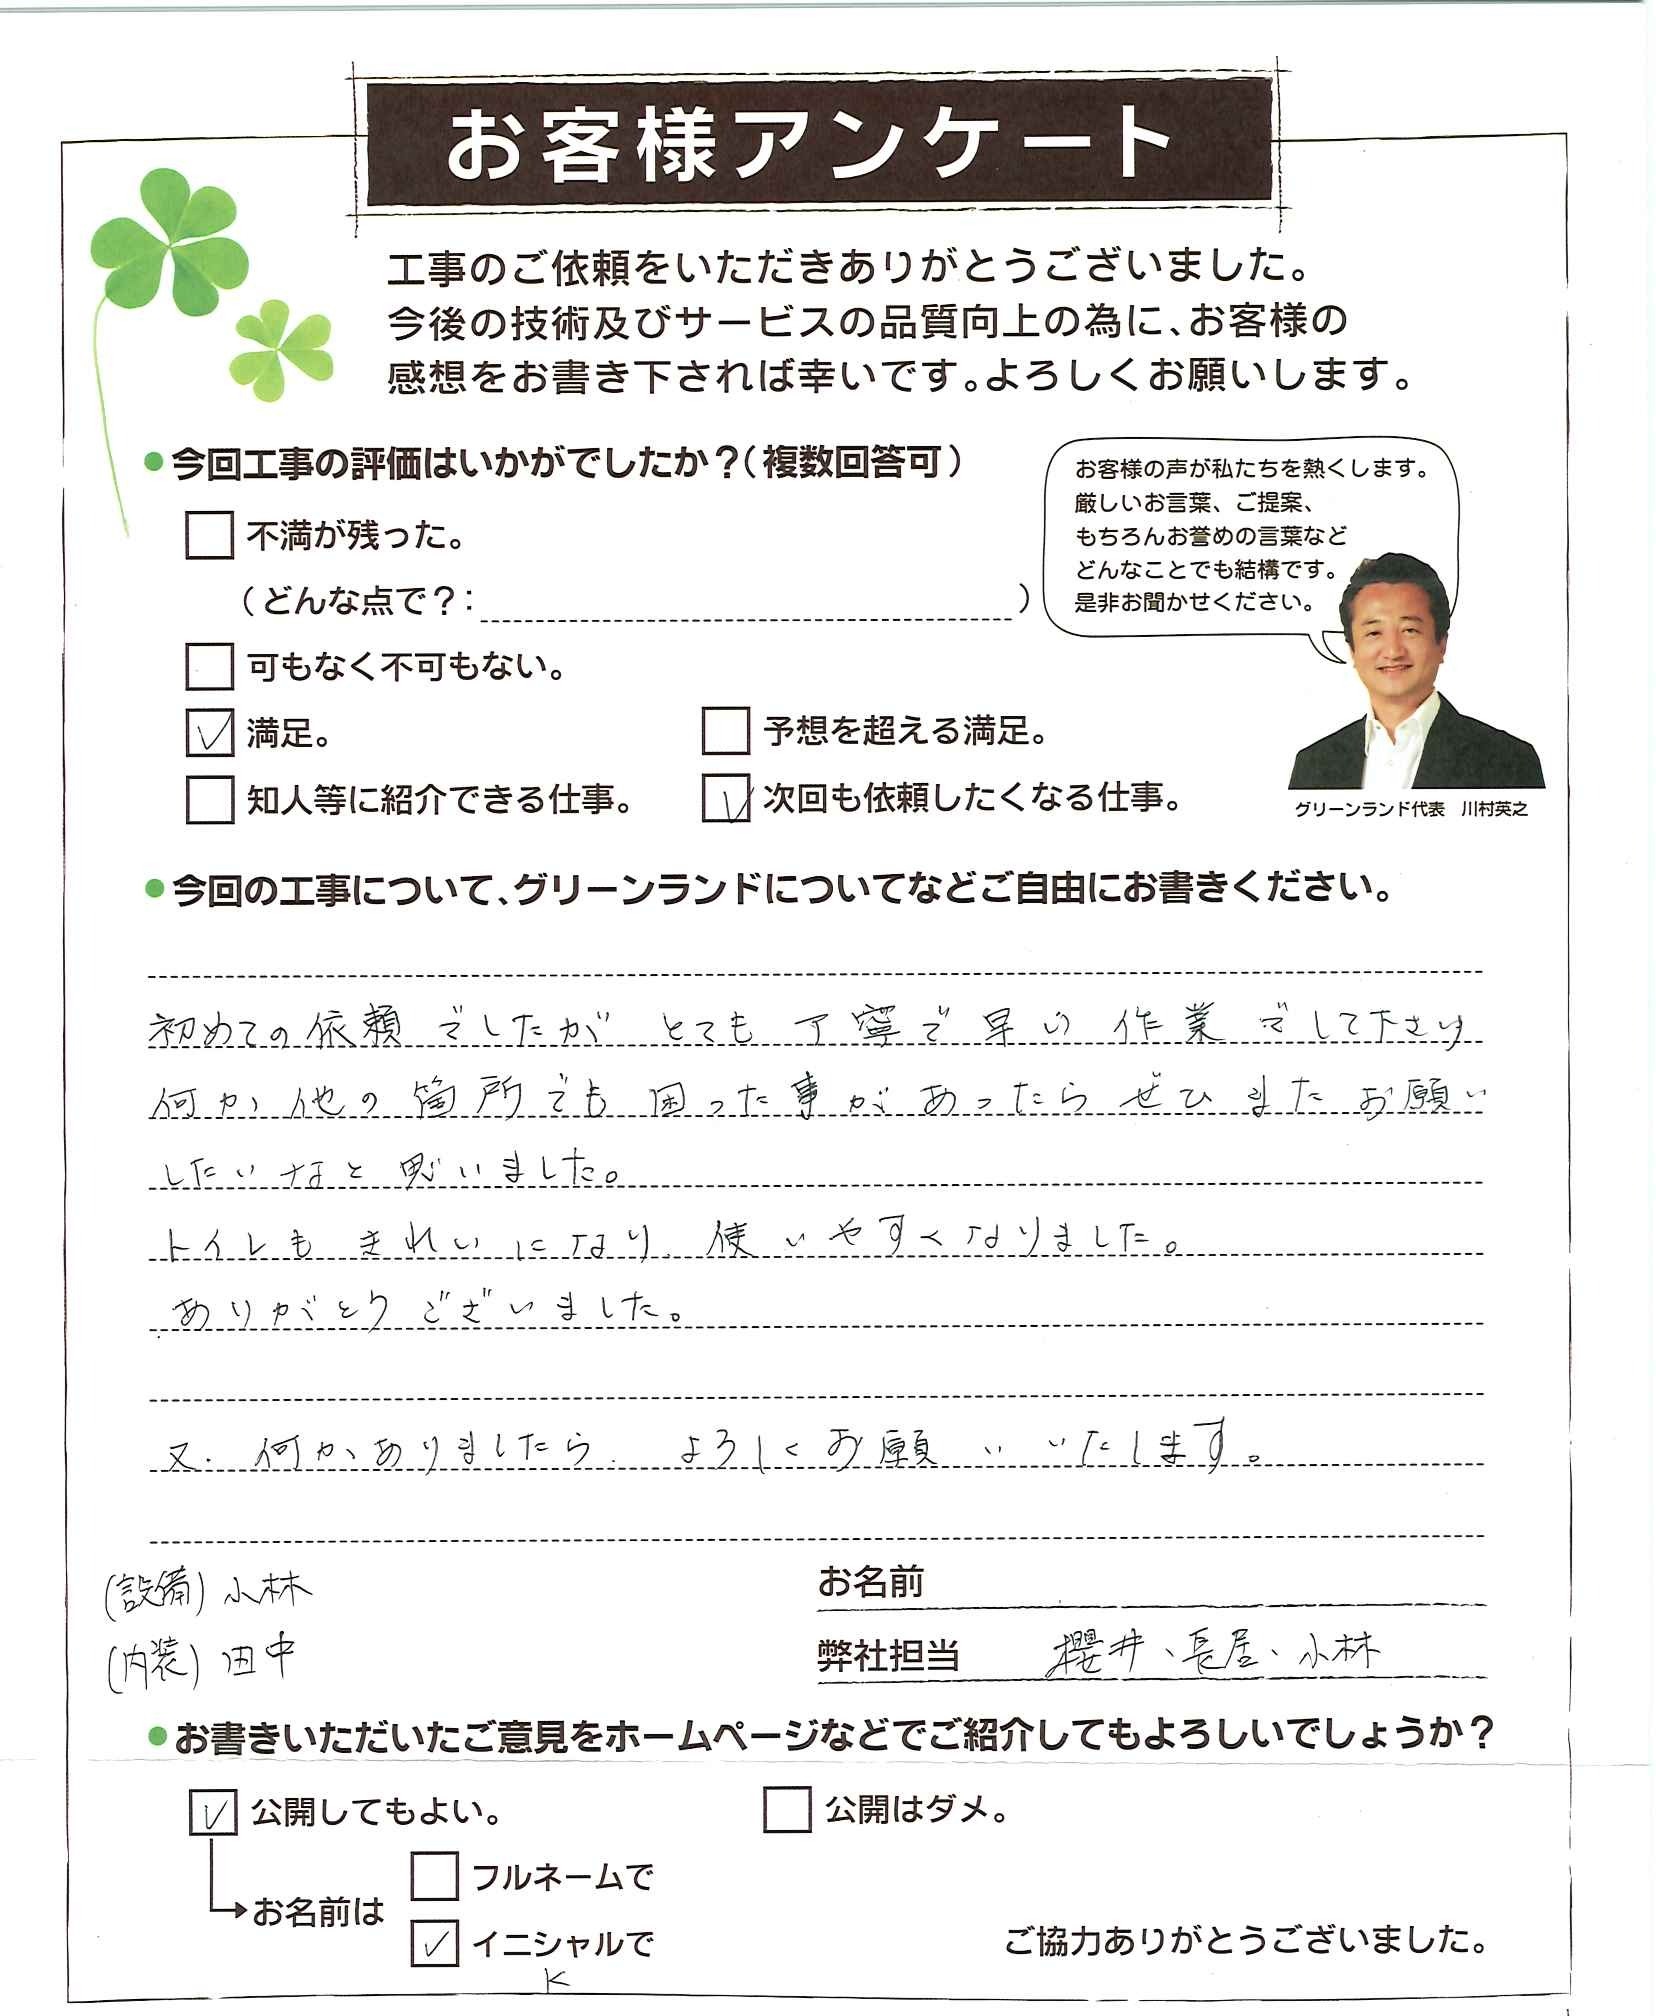 お客様アンケート
工事のご依頼をいただきありがとうございました。
今後の技術及びサービスの品質向上の為に、お客様の
感想をお書き下されば幸いです。よろしくお願いします。
●今回工事の評価はいかがでしたか？（複数回答可）
お客様の声が私たちを熱くします。
厳しいお言葉、ご提案、
もちろんお誉めの言葉など
どんなことでも結構です。
是非お聞かせください。
不満が残った。
（どんな点で？：　）
可もなく不可もない。
満足。
予想を超える満足。
知人等に紹介できる仕事。
次回も依頼したくなる仕事。
グリーンランド代表　川村英之
●今回の工事について、グリーンランドについてなどご自由にお書きください。
初めての依頼でしたが とても丁寧で早い作業でして下さり
何か他の箇所でも困った事があったらぜひまたお願い
したいなと思いました。
トイレもきれいになり、使いやすくなりました。
ありがとうございました。
又、何かありましたら、よろしくお願いいたします。
(設備) 小林
(内装) 田中
お名前
弊社担当　櫻井、長居、小林
●お書きいただいたご意見をホームページなどでご紹介してもよろしいでしょうか？
公開してもよい。
公開はダメ。
お名前は
フルネームで
イニシャルで
K
ご協力ありがとうございました。